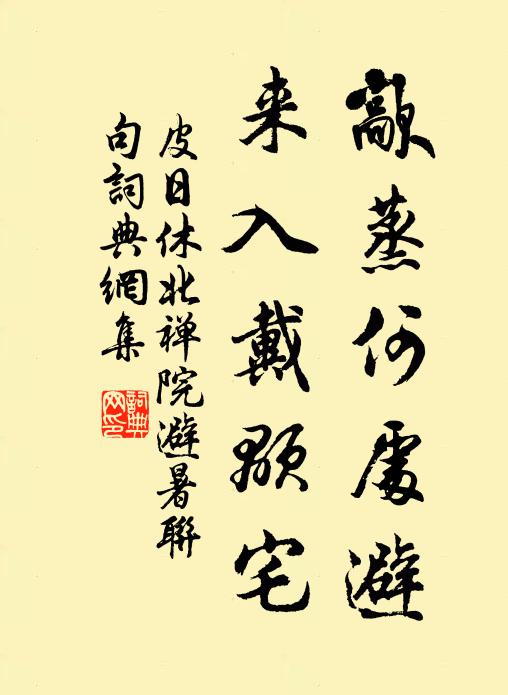 歊蒸何處避
来入戴顒宅
皮日休北禅院避暑聯
句詞典網集
詞典
网印